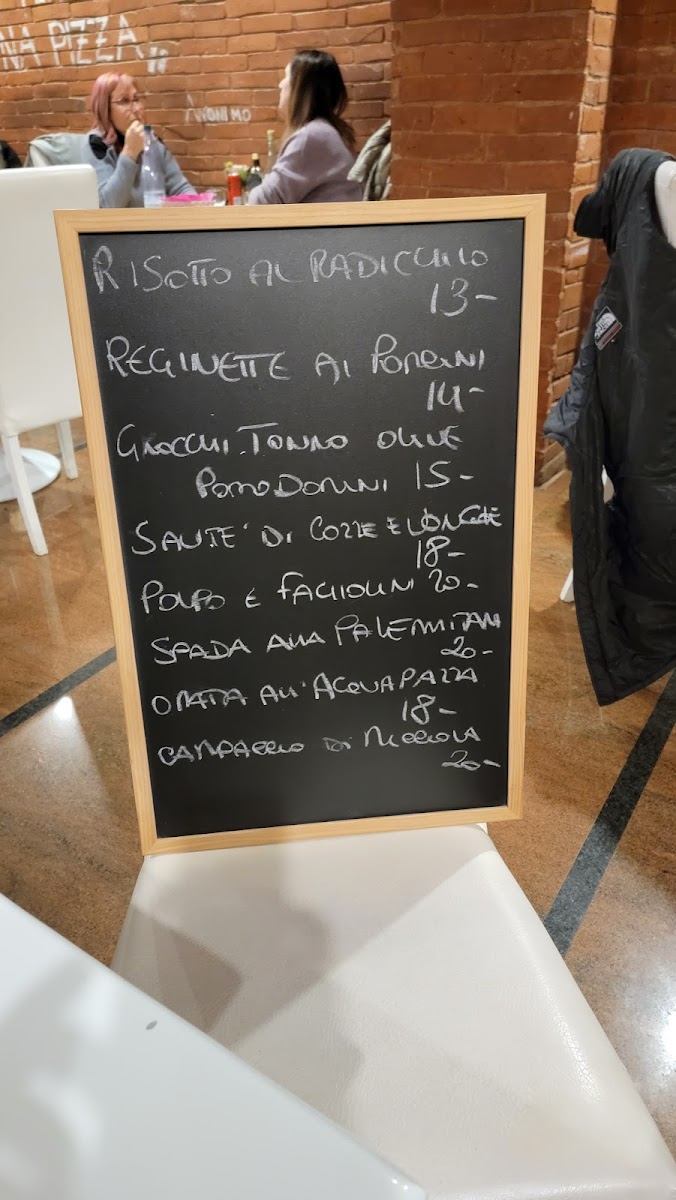 NA PIZZA"
ANONIMO
RISOTTO AL RADICCHIO
13-
REGINETTE AI PORCINI
14-
GNOCCHI TONNO OLIVE
POMODORINI 15-
SAUTE' DI COZZE E VONGOLE
18-
POLPO E FAGIOLINI 20-
SPADA ALLA PALERMITANA
20-
ORATA ALL'ACQUAPAZZA
18-
CARPACCIO DI RICCIOLA
20-
THE NORTH FACE